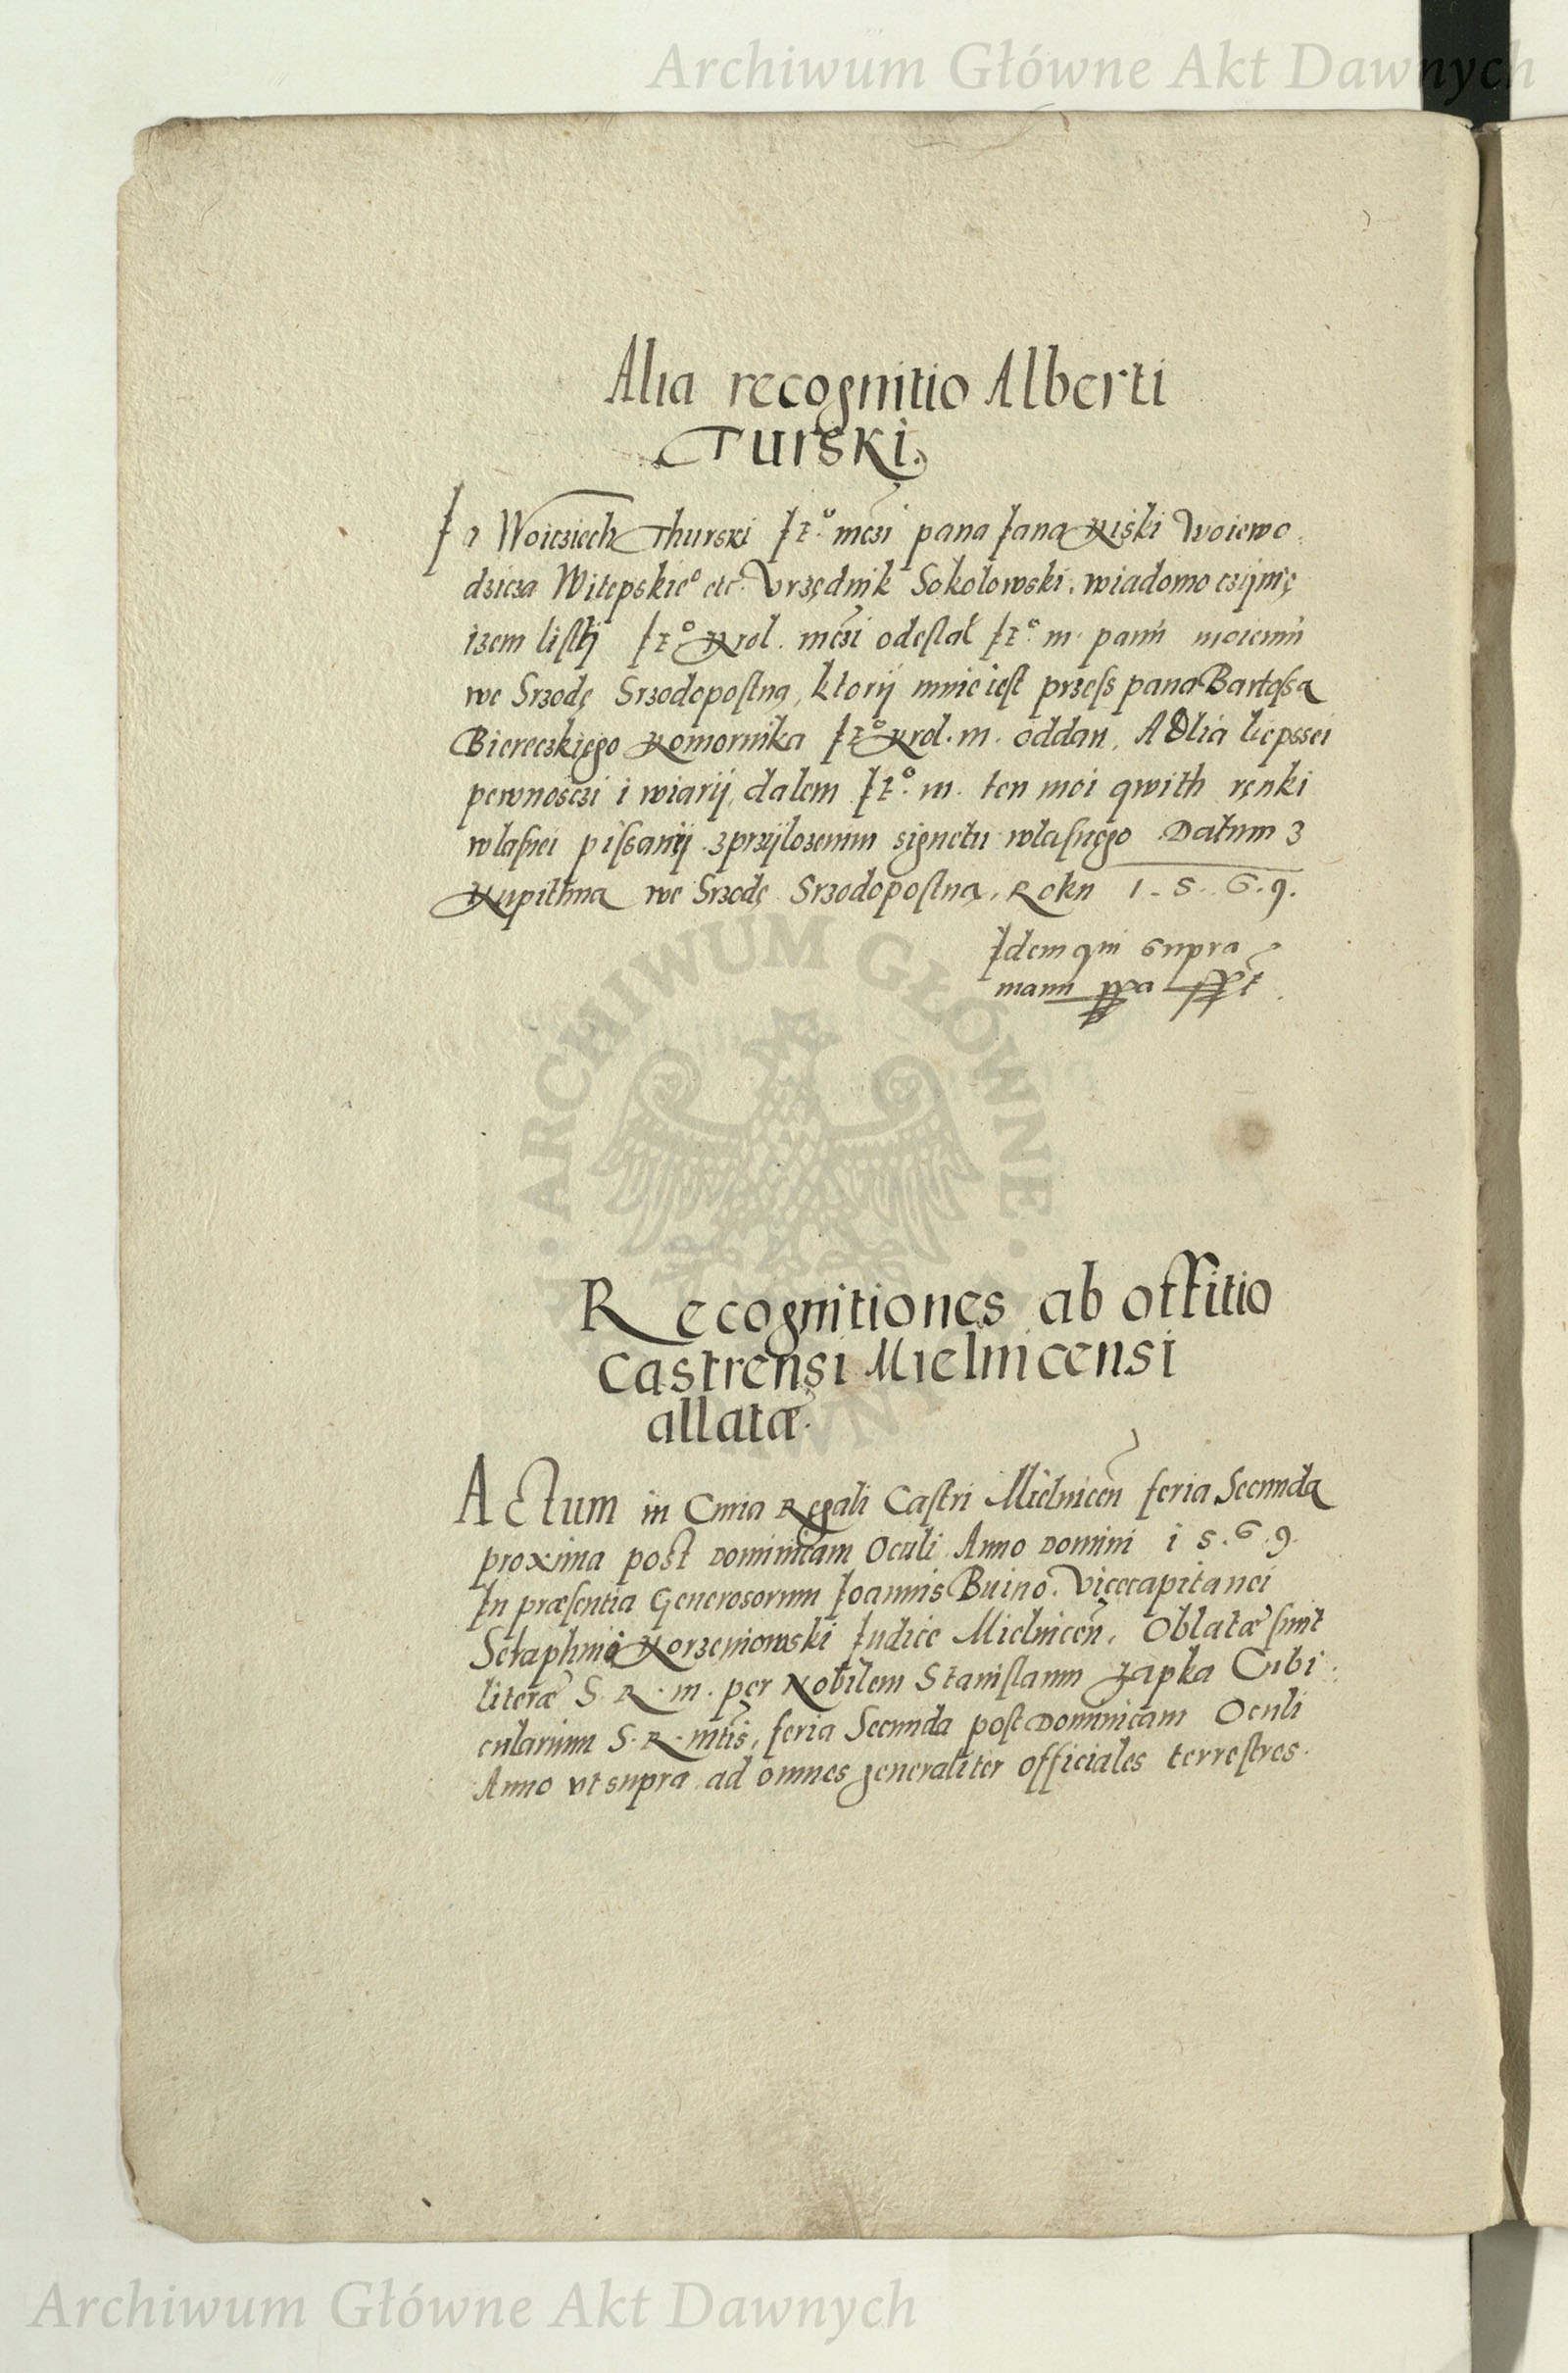 Archiwum Główne Akt Dawnych
Alia recognitio Alberti
Turski.
Ja Woicziech Thurski Je.º mczi pana Jana Kiski Woiewo
dzicza Witepskieº etc. Vrzędnik Sokolowski. wiadomo czijnię
izem listij Je.º Krol. mczi odesłał Je.º m. panu moiemu
we Srzodę Srzodopostną, ktorij mnie iest przess pana Bartosa
Biereczkięgo Komornika Je.º Krol. m. oddan, A dlia liepssei
pewnosczi i wiarij, dalem Je.º m. ten moi qwith ręnki
wlasnei pissanij z przijlozenim signetu wlasnęgo Datum z
we Srzodę Srzodopostną, Roku 1.5.6.9.
Idem qui supra
manu ppa sspt
ARCHIWUM GŁÓWNE
Recognitiones ab offitio
Castrensi Mielnicensi
allatæ.
Actum in Curia Regali Castri Mielnicen feria Secunda
proxima post Dominicam Oculi Anno Domini 1 5.6.9.
In præsentia Generosorum Joannis Buino. Vicecapitanei
Seraphini Korzeniowski Judice Mielnicen, Oblatæ sunt
literæ S. R. m. per Nobilem Stanislaum Zapka Cubi
cularium S. R. mtis, feria Secunda post Dominicam Oculi
Anno vt supra ad omnes generaliter officiales terrestres.
Archiwum Główne Akt Dawnych